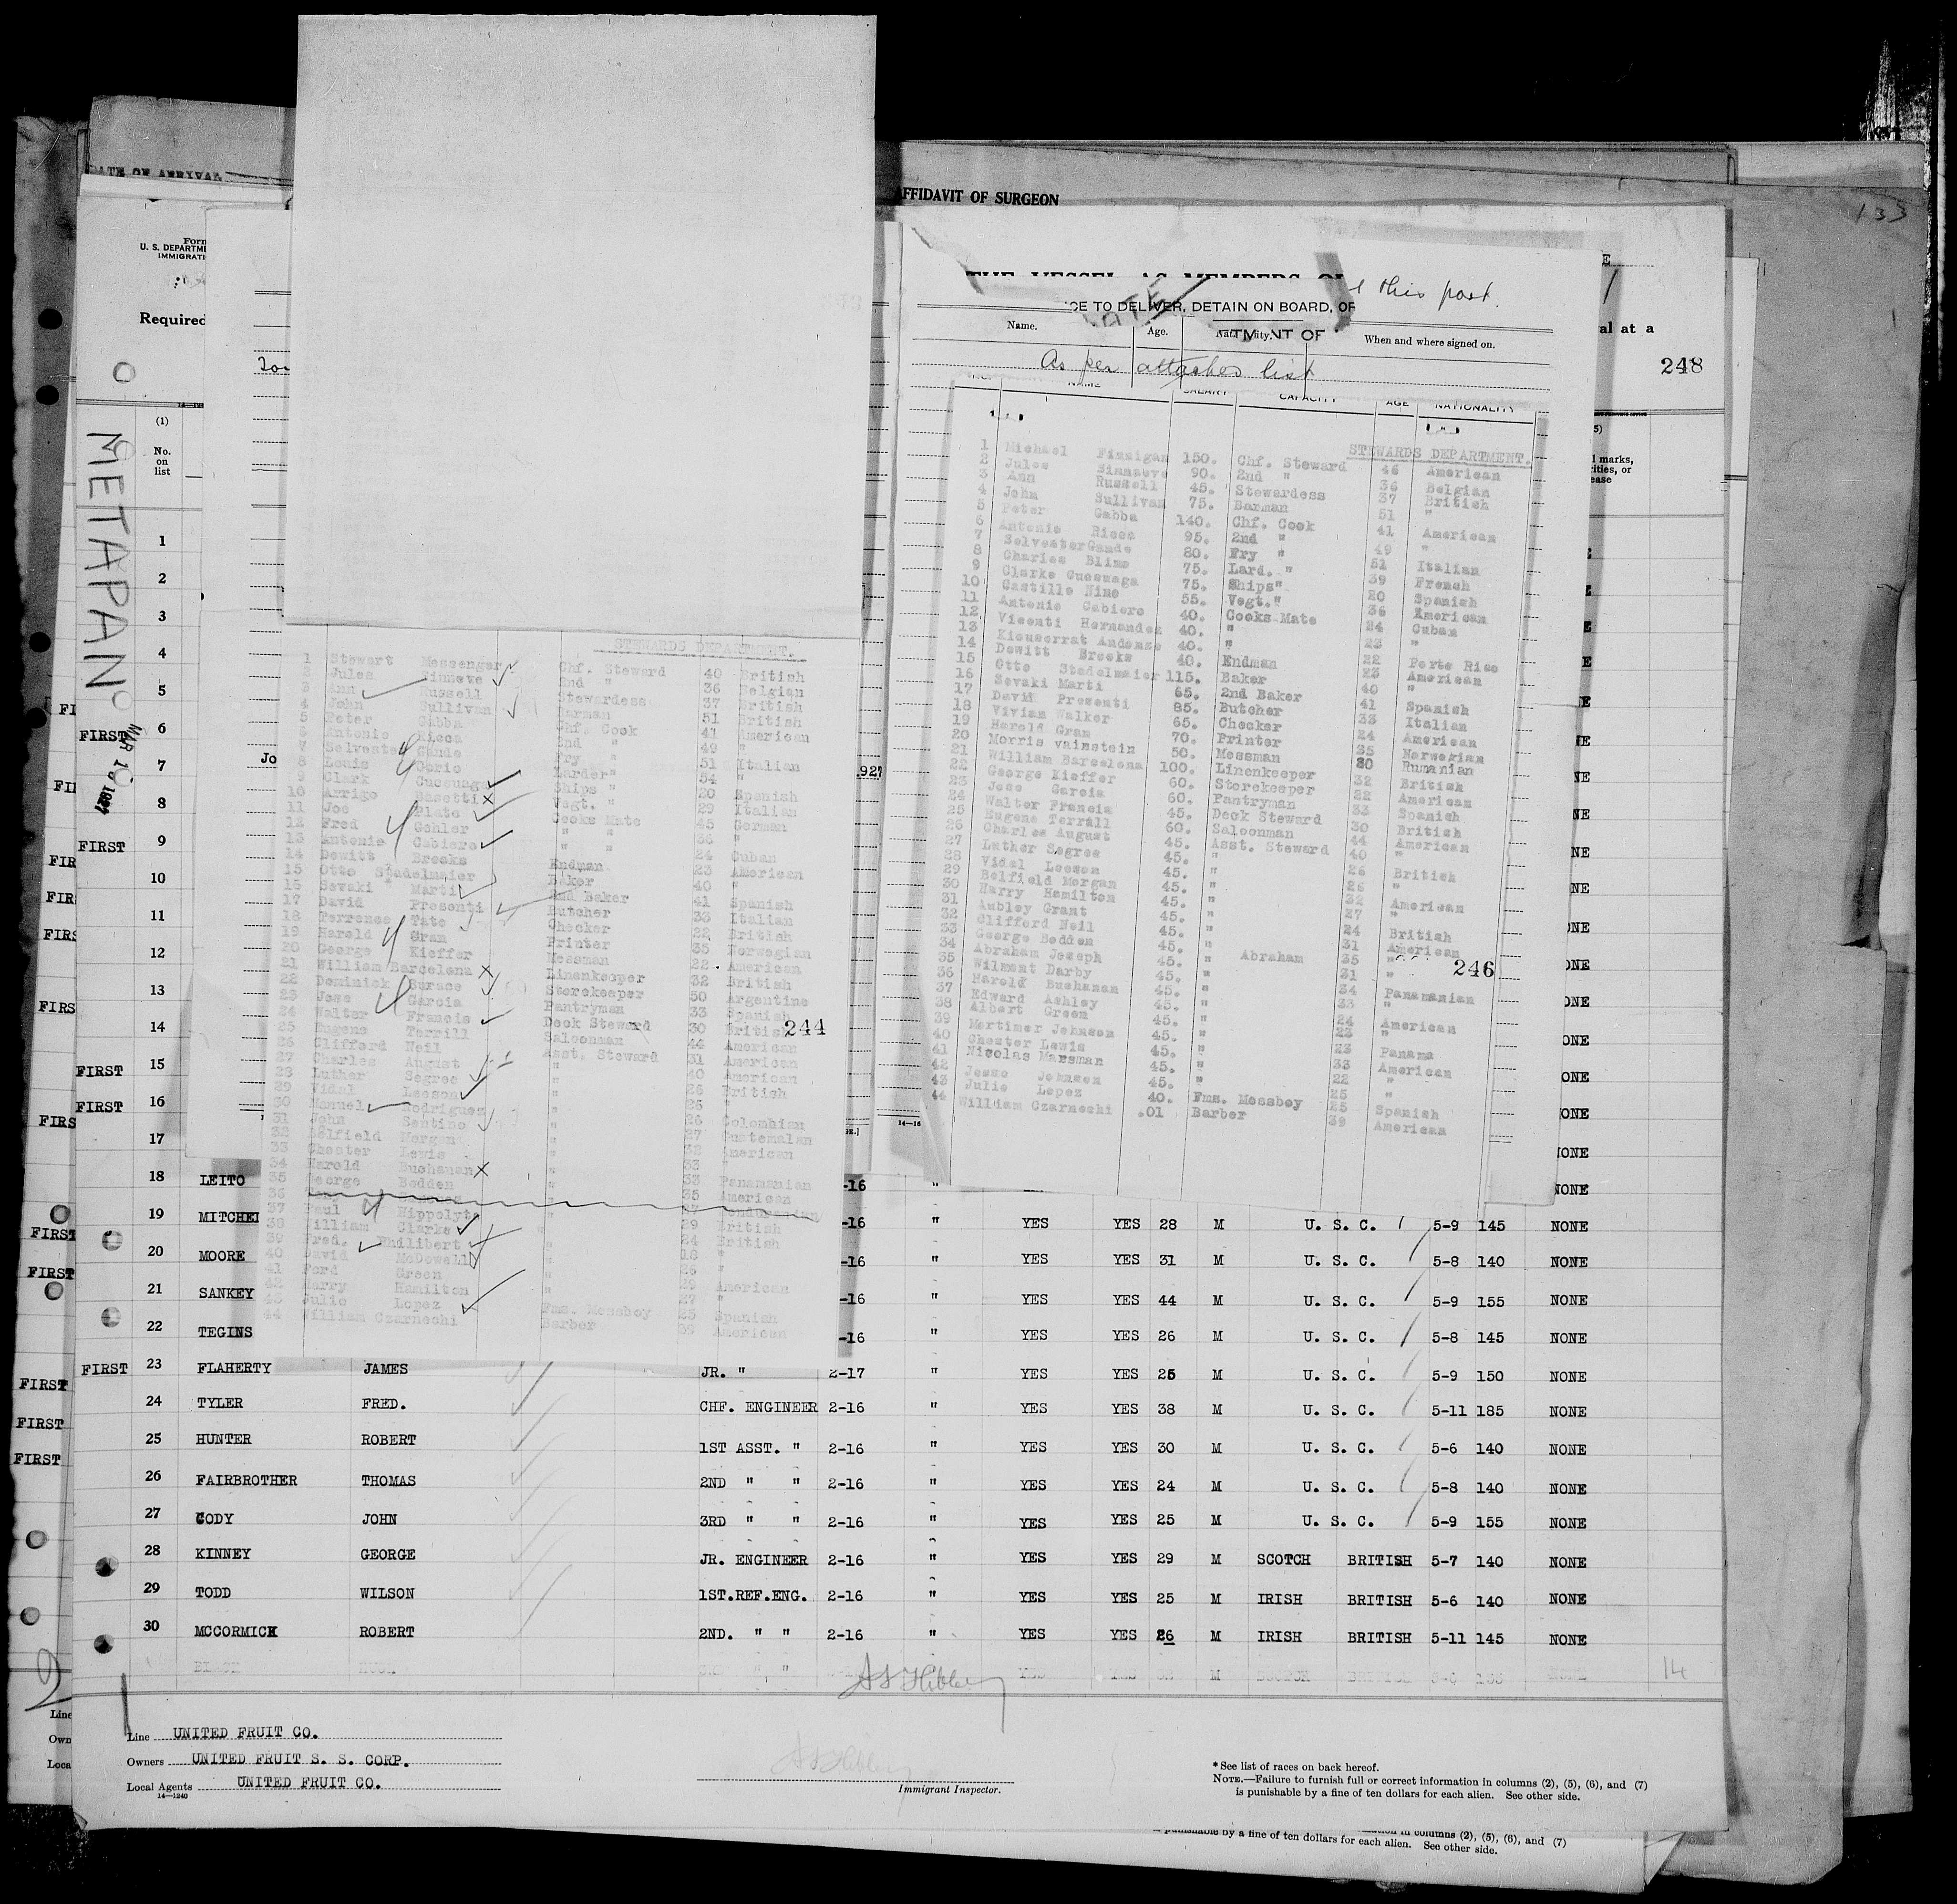 DATE OF ARRIVAL
AFFIDAVIT OF SURGEON
133
Form
U. S. DEPARTME
IMMIGRATI
Required
(1)
No.
on
list
METAPAN
MAR 10 1927
THE VESSEL AS MEMBERS OF
this port.
CE TO DELIVER, DETAIN ON BOARD, OR
TMENT OF
Name.
Age.
When and where signed on.
As per attached list
al at a
248
l marks,
ities, or
ease
NAME SALARY CAPACITY AGE NATIONALITY
STEWARDS DEPARTMENT.
1 Michael Finnigan 150. Chf. Steward 46 American
2 Jules Sinnaeve 90. 2nd " 36 Belgian
3 Ann Russell 45. Stewardess 37 British
4 John Sullivan 75. Barman 51 "
5 Peter Gabba 140. Chf. Cook 41 American
6 Antonio Ricca 95. 2nd " 49 "
7 Selvester Gande 80. Fry " 51 Italian
8 Charles Blime 75. Lard. " 39 French
9 Clarke Cucsuaga 75. Ships " 20 Spanish
10 Castillo Nimo 55. Vegt. " 36 American
11 Antonio Cabiero 40. Cooks Mate 24 Cuban
12 Vicenti Hernandez 40. " 23 "
13 40. " 22 Porto Rico
14 Dewitt Brooks 40. Endman 23 American
15 Otto Stadelmaier 115. Baker 40 "
16 Sevaki Marti 65. 2nd Baker 41 Spanish
17 David Presenti 85. Butcher 33 Italian
18 Vivian Walker 65. Checker 24 American
19 Harold Gram 70. Printer 35 Norwegian
20 Morris Vainstein 50. Messman 20 Rumanian
21 William Barcelona 100. Linenkeeper 32 British
22 George Kieffer 60. Storekeeper 22 American
23 Jose Garcia 60. Pantryman 33 Spanish
24 Walter Francis 45. Deck Steward 30 British
25 Eugene Terrill 60. Saloonman 44 American
26 Charles August 45. Asst. Steward 40 "
27 Luther Segree 45. " 26 British
28 Vidal Leeson 45. " 26 "
29 Belfield Morgan 45. " 32 American
30 Harry Hamilton 45. " 27 "
31 Aubley Grant 45. " 24 British
32 Clifford Neil 45. " 31 American
33 George Bodden 45. " 35 "
34 Abraham Joseph 45. " Abraham 31 "
35 Wilmont Darby 45. " 34 Panamanian
36 Harold Buchanan 45. " 33 "
37 Edward Ashley 45. " 24 American
38 Albert Green 45. " 23 "
39 Mortimer Johnson 45. " 23 Panama
40 Chester Lewis 45. " 33 American
41 Nicolas Marsman 45. " 22 "
42 Jesse Johnson 45. " 25 "
43 Julio Lopez 40. Fms. Messboy 25 Spanish
44 William Czarnechi .01 Barber 39 American
246
STEWARDS DEPARTMENT.
1 Stewart Messenger Chf. Steward 40 British
2 Jules Sinneve 2nd " 36 Belgian
3 Ann Russell Stewardess 37 British
4 John Sullivan Barman 51 British
5 Peter Gabba Chf. Cook 41 American
6 Antonio Ricca 2nd " 49 "
7 Selvester Gande Fry " 51 Italian
8 Louis Larder " 54 "
9 Clark Cucsunga Ships " 20 Spanish
10 Arrigo Vegt. " 29 Italian
11 Joe Plate Cooks Mate 45 German
12 Fred Gohler " " 36 "
13 Antonio Cabiero " " 24 Cuban
14 Dewitt Brooks Endman 23 American
15 Otto Stadelmaier Baker 40 "
16 Sevaki Marti 2nd Baker 41 Spanish
17 David Presenti Butcher 33 Italian
18 Terrence Tate Checker 22 British
19 Harold Gram Printer 35 Norwegian
20 George Kieffer Messman 22 American
21 William Barcelona Linenkeeper 32 British
22 Dominick Storekeeper 50 Argentine
23 Jose Garcia Pantryman 33 Spanish
24 Walter Francis Deck Steward 30 British
25 Eugene Terrill Saloonman 44 American
26 Clifford Neil Asst. Steward 31 American
27 Charles August " 40 American
28 Luther Segree " 26 British
29 Vidal Leeson " 26
30 Manuel Rodriguez " 26 Colombian
31 John Santino " 27 Guatemalan
32 Belfield Morgan " 32 American
33 Chester Lewis " 33 "
34 Harold Buchanan " 33 Panamanian
35 George Bodden " 35 American
36
37 Paul Hippolyte " 29 British
38 William Clarke " 24 British
39 Fred. Philibert " 18 "
40 David McDowell " 26 "
41 Ford Green " 29 American
42 Harry Hamilton " 27 "
43 Julio Lopez Fms. Messboy 25 Spanish
44 William Czarnechi Barber 39 American
244
18 LEITO -16 " NONE
19 MITCHEL -16 " YES YES 28 M U. S. C. 5-9 145 NONE
20 MOORE -16 " YES YES 31 M U. S. C. 5-8 140 NONE
21 SANKEY -16 " YES YES 44 M U. S. C. 5-9 155 NONE
22 TEGINS -16 " YES YES 26 M U. S. C. 5-8 145 NONE
FIRST 23 FLAHERTY JAMES JR. " 2-17 " YES YES 25 M U. S. C. 5-9 150 NONE
24 TYLER FRED. CHF. ENGINEER 2-16 " YES YES 38 M U. S. C. 5-11 185 NONE
25 HUNTER ROBERT 1ST ASST. " 2-16 " YES YES 30 M U. S. C. 5-6 140 NONE
26 FAIRBROTHER THOMAS 2ND " " 2-16 " YES YES 24 M U. S. C. 5-8 140 NONE
27 CODY JOHN 3RD " " 2-16 " YES YES 25 M U. S. C. 5-9 155 NONE
28 KINNEY GEORGE JR. ENGINEER 2-16 " YES YES 29 M SCOTCH BRITISH 5-7 140 NONE
29 TODD WILSON 1ST.REF.ENG. 2-16 " YES YES 25 M IRISH BRITISH 5-6 140 NONE
30 MCCORMICK ROBERT 2ND. " " 2-16 " YES YES 26 M IRISH BRITISH 5-11 145 NONE
14
Line UNITED FRUIT CO.
Owners UNITED FRUIT S. S. CORP.
Local Agents UNITED FRUIT CO.
14—1240
Immigrant Inspector.
* See list of races on back hereof.
NOTE.—Failure to furnish full or correct information in columns (2), (5), (6), and (7)
is punishable by a fine of ten dollars for each alien. See other side.
is punishable by a fine of ten dollars for each alien. See other side.